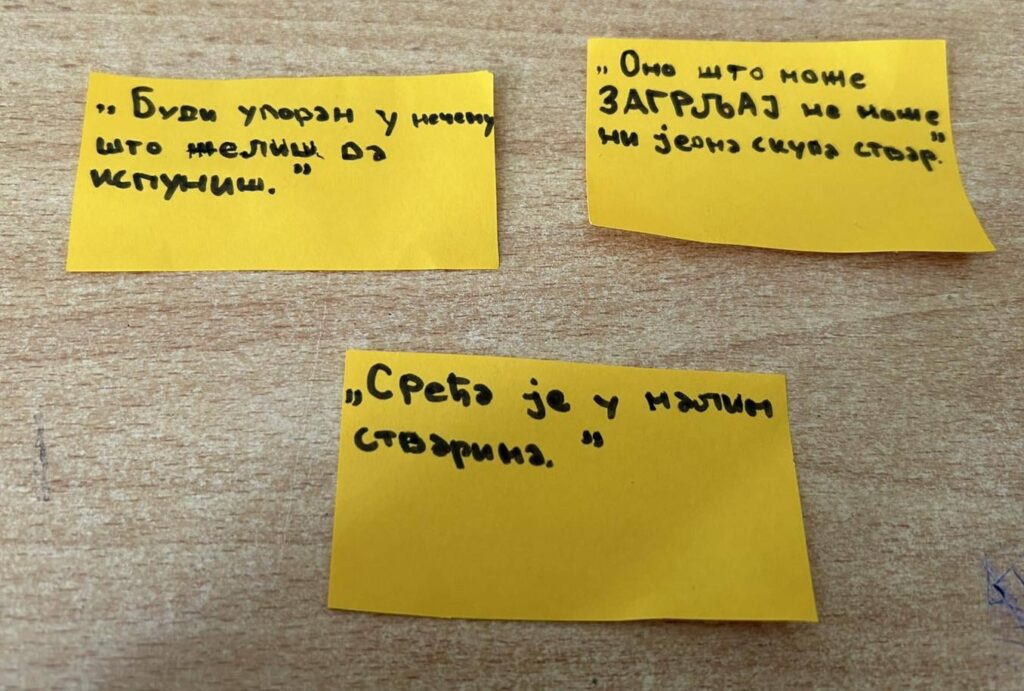 „Буди упоран у нечему
што желиш да
испуниш.”
„Оно што може
ЗАГРЉАЈ не може
ни једна скупа ствар.”
„Срећа је у малим
стварима.”